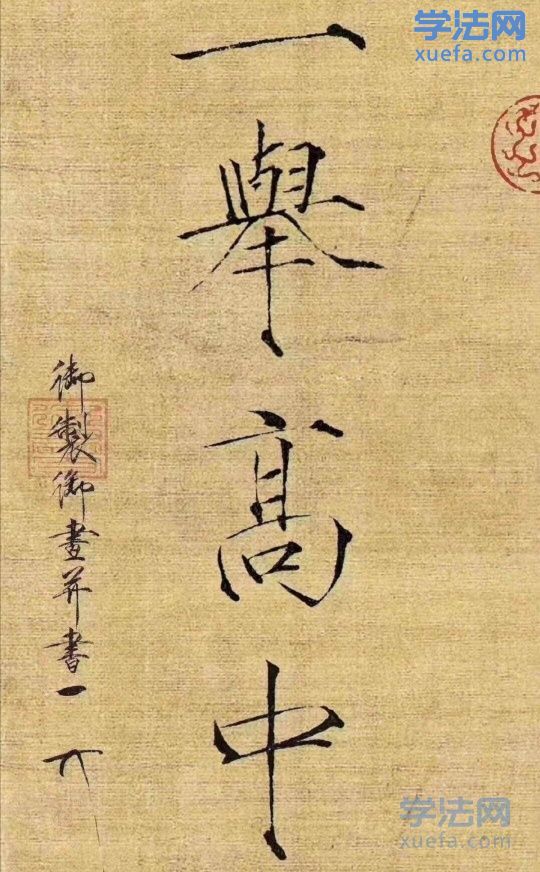 学法网
xuefa.com
一舉髙中
御製御畫并書
学法网
xuefa.com